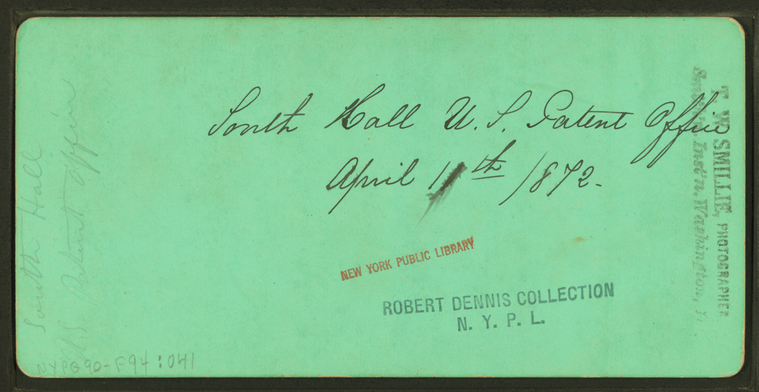 South Hall U.S. Patent Office
April 11th 1872.
NEW YORK PUBLIC LIBRARY
ROBERT DENNIS COLLECTION
N. Y. P. L.
T. W. SMILLIE, PHOTOGRAPHER
Inst'n, Washington,
South Hall
U.S. Patent Office
NYPG90-F94:041